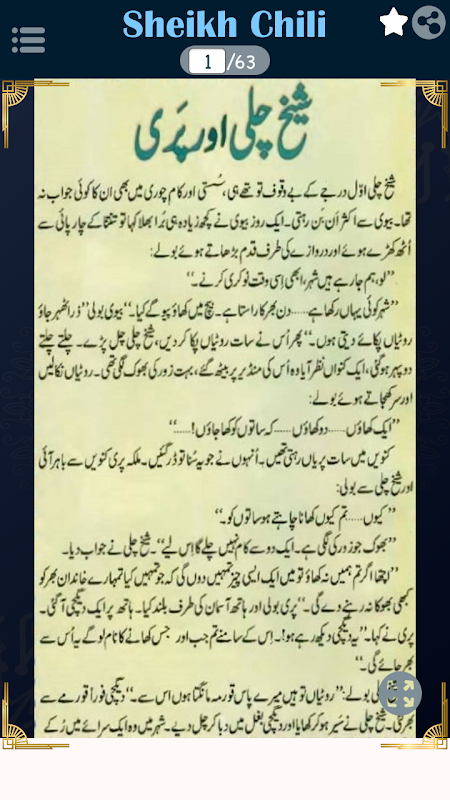 Sheikh Chili
1/63
شیخ چلی اور پَری
شیخ چلی اوّل درجے کے بے وقوف تو تھے ہی، سُستی اور کام چوری میں بھی ان کا کوئی جواب نہ
تھا۔ بیوی سے اکثر اَن بَن رہتی۔ ایک روز بیوی نے کچھ زیادہ ہی بُرا بھلا کہا تو تنتنا کے چارپائی سے
اُٹھ کھڑے ہوئے اور دروازے کی طرف قدم بڑھاتے ہوئے بولے:
”لو، ہم جا رہے ہیں شہر، ابھی اِسی وقت نوکری کرنے۔“
”شہر کوئی یہاں رکھا ہے.....دن بھر کا راستا ہے۔ بیچ میں کھاؤ پیو گے کیا۔“ بیوی بولی ”ذرا ٹھہر جاؤ
روٹیاں پکائے دیتی ہوں۔“ پھر اُس نے سات روٹیاں پکا کر دیں، شیخ چلی چل پڑے۔ چلتے چلتے
دوپہر ہوگئی، ایک کنواں نظر آیا وہ اُس کی منڈیر پر بیٹھ گئے، بہت زور کی بھوک لگی تھی۔ روٹیاں نکالیں
اور سر کھجاتے ہوئے بولے:
”ایک کھاؤں.....دو کھاؤں.....کہ ساتوں کو کھا جاؤں!.....“
کنویں میں سات پریاں رہتی تھیں۔ اُنہوں نے جو یہ سُنا تو ڈر گئیں۔ ملکہ پری کنویں سے باہر آئی
اور شیخ چلی سے بولی:
”کیوں.....تم کیوں کھانا چاہتے ہو ساتوں کو۔“
”بھوک جو زور کی لگی ہے۔ ایک دو سے کام نہیں چلے گا اِس لیے“۔ شیخ چلی نے جواب دیا۔
”اچھا اگر تم ہمیں نہ کھاؤ تو میں ایک ایسی چیز تمہیں دوں گی کہ جو تمہیں کیا تمہارے خاندان بھر کو
کبھی بھوکا نہ رہنے دے گی۔“ پری بولی اور ہاتھ آسمان کی طرف بلند کیا۔ ہاتھ پر ایک دیگچی آ گئی۔
پری نے کہا۔ ”یہ دیگچی دیکھ رہے ہو!۔ اِس کے سامنے تم جب اور جس کھانے کا نام لو گے یہ اُس سے
بھر جائے گی۔“
شیخ چلی بولے: ”روٹیاں تو ہیں میرے پاس قورمہ مانگتا ہوں اس سے۔“ دیگچی فوراً قورمے سے
بھر گئی۔ شیخ چلی نے سَیر ہو کر کھایا اور دیگچی بغل میں دبا کر چل دیے۔ شہر میں وہ ایک سرائے میں رُکے